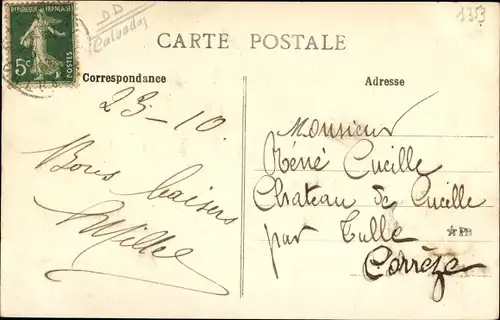 RÉPUBLIQUE FRANÇAISE
5c POSTES
DD
Calvados
1353
CARTE POSTALE
Correspondance
Adresse
23-10.
Bons baisers
Monsieur
Réné Cucille
Chateau de Cucille
par Tulle
Corrèze